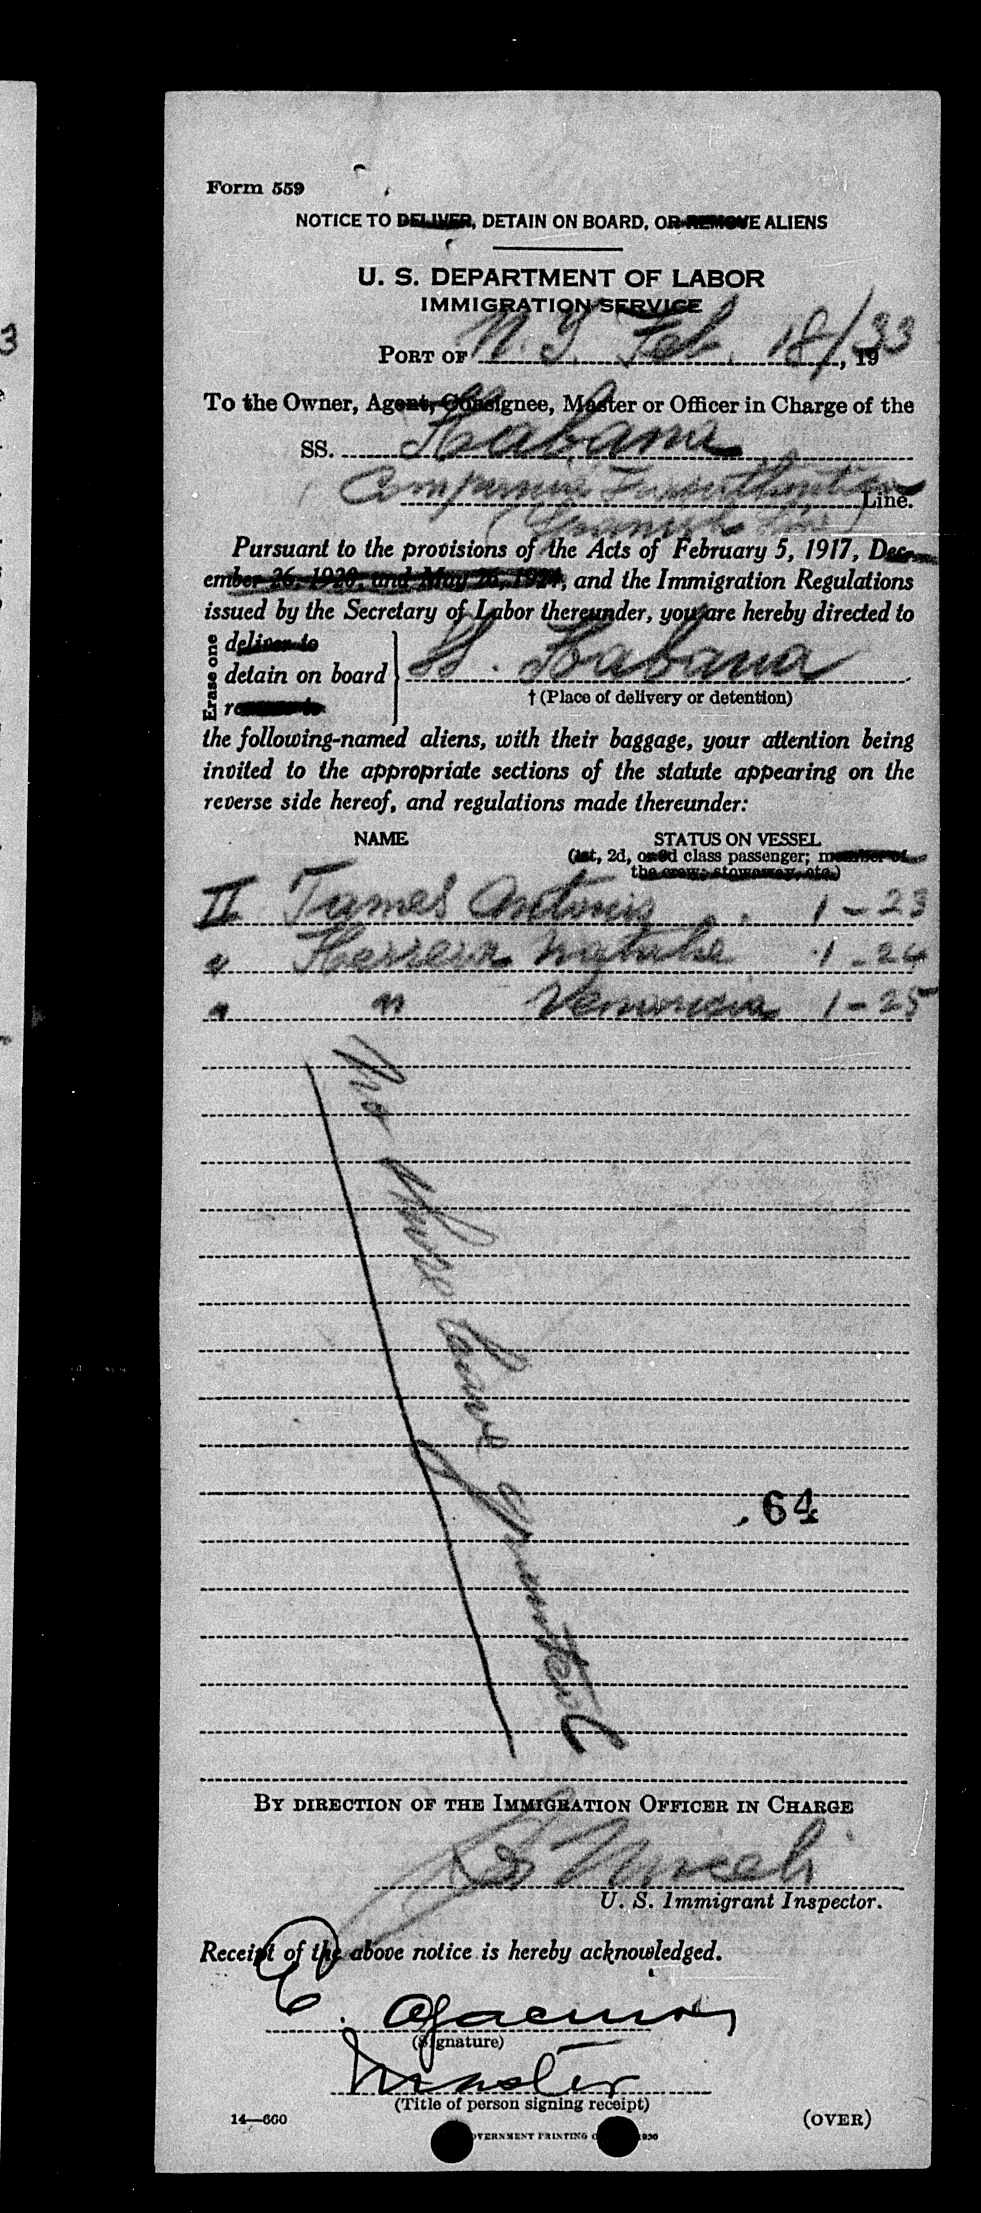 3
Form 559
NOTICE TO DELIVER, DETAIN ON BOARD, OR REMOVE ALIENS
U. S. DEPARTMENT OF LABOR
IMMIGRATION SERVICE
PORT OF N. Y. Feb. 18/33, 19
To the Owner, Agent, Consignee, Master or Officer in Charge of the
SS. Habana
Line.
(Spanish Line)
Pursuant to the provisions of the Acts of February 5, 1917, Dec-
ember 26, 1920, and May 26, 1924, and the Immigration Regulations
issued by the Secretary of Labor thereunder, you are hereby directed to
Erase one
deliver to
detain on board
remove to
SS. Habana
† (Place of delivery or detention)
the following-named aliens, with their baggage, your attention being
invited to the appropriate sections of the statute appearing on the
reverse side hereof, and regulations made thereunder:
NAME STATUS ON VESSEL
(1st, 2d, or 3d class passenger; member of
the crew; stowaway, etc.)
II Tames Antonio 1-23
" Herrera 1-24
" " 1-25
No Shore leave granted
64
BY DIRECTION OF THE IMMIGRATION OFFICER IN CHARGE
Miceli
U. S. Immigrant Inspector.
Receipt of the above notice is hereby acknowledged.
E.
(Signature)
Master
(Title of person signing receipt)
14—660 (OVER)
GOVERNMENT PRINTING 1930